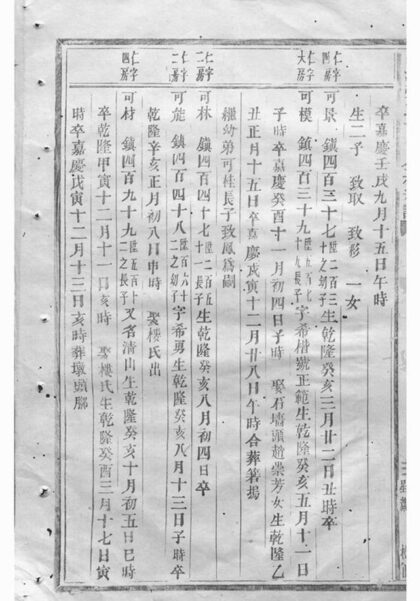 卒嘉慶壬戌九月十五日午時
生二子 致取 致彩 一女
仁字四房
可景 鎮四百三十七 十之幼子 生乾隆癸亥三月廿二日丑時卒
仁字大房
可模 鎮四百三十九 九長子 字希楷號正範生乾隆癸亥五月十一日
子時卒嘉慶癸酉十一月初四日子時 娶石墻頭趙崇芳女生乾隆乙
丑正月十五日卒嘉慶戊寅十二月廿八日午時合葬箬塢
繼幼弟可桂長子致鳳為嗣
仁字二房
可林 鎮四百四十七 十一長子 生乾隆癸亥八月初四日卒
仁字二房
可施 鎮四百四十八 二之幼子 字希勇生乾隆癸亥八月十三日子時卒
乾隆辛亥正月初八日申時 娶樓氏出
仁字四房
可材 鎮四百九十九 二之長子 又名清山生乾隆癸亥十月初五日巳時
卒乾隆甲寅十二月十一日亥時 娶樓氏生乾隆癸酉三月十七日寅
時卒嘉慶戊寅十二月十三日亥時葬墳頭